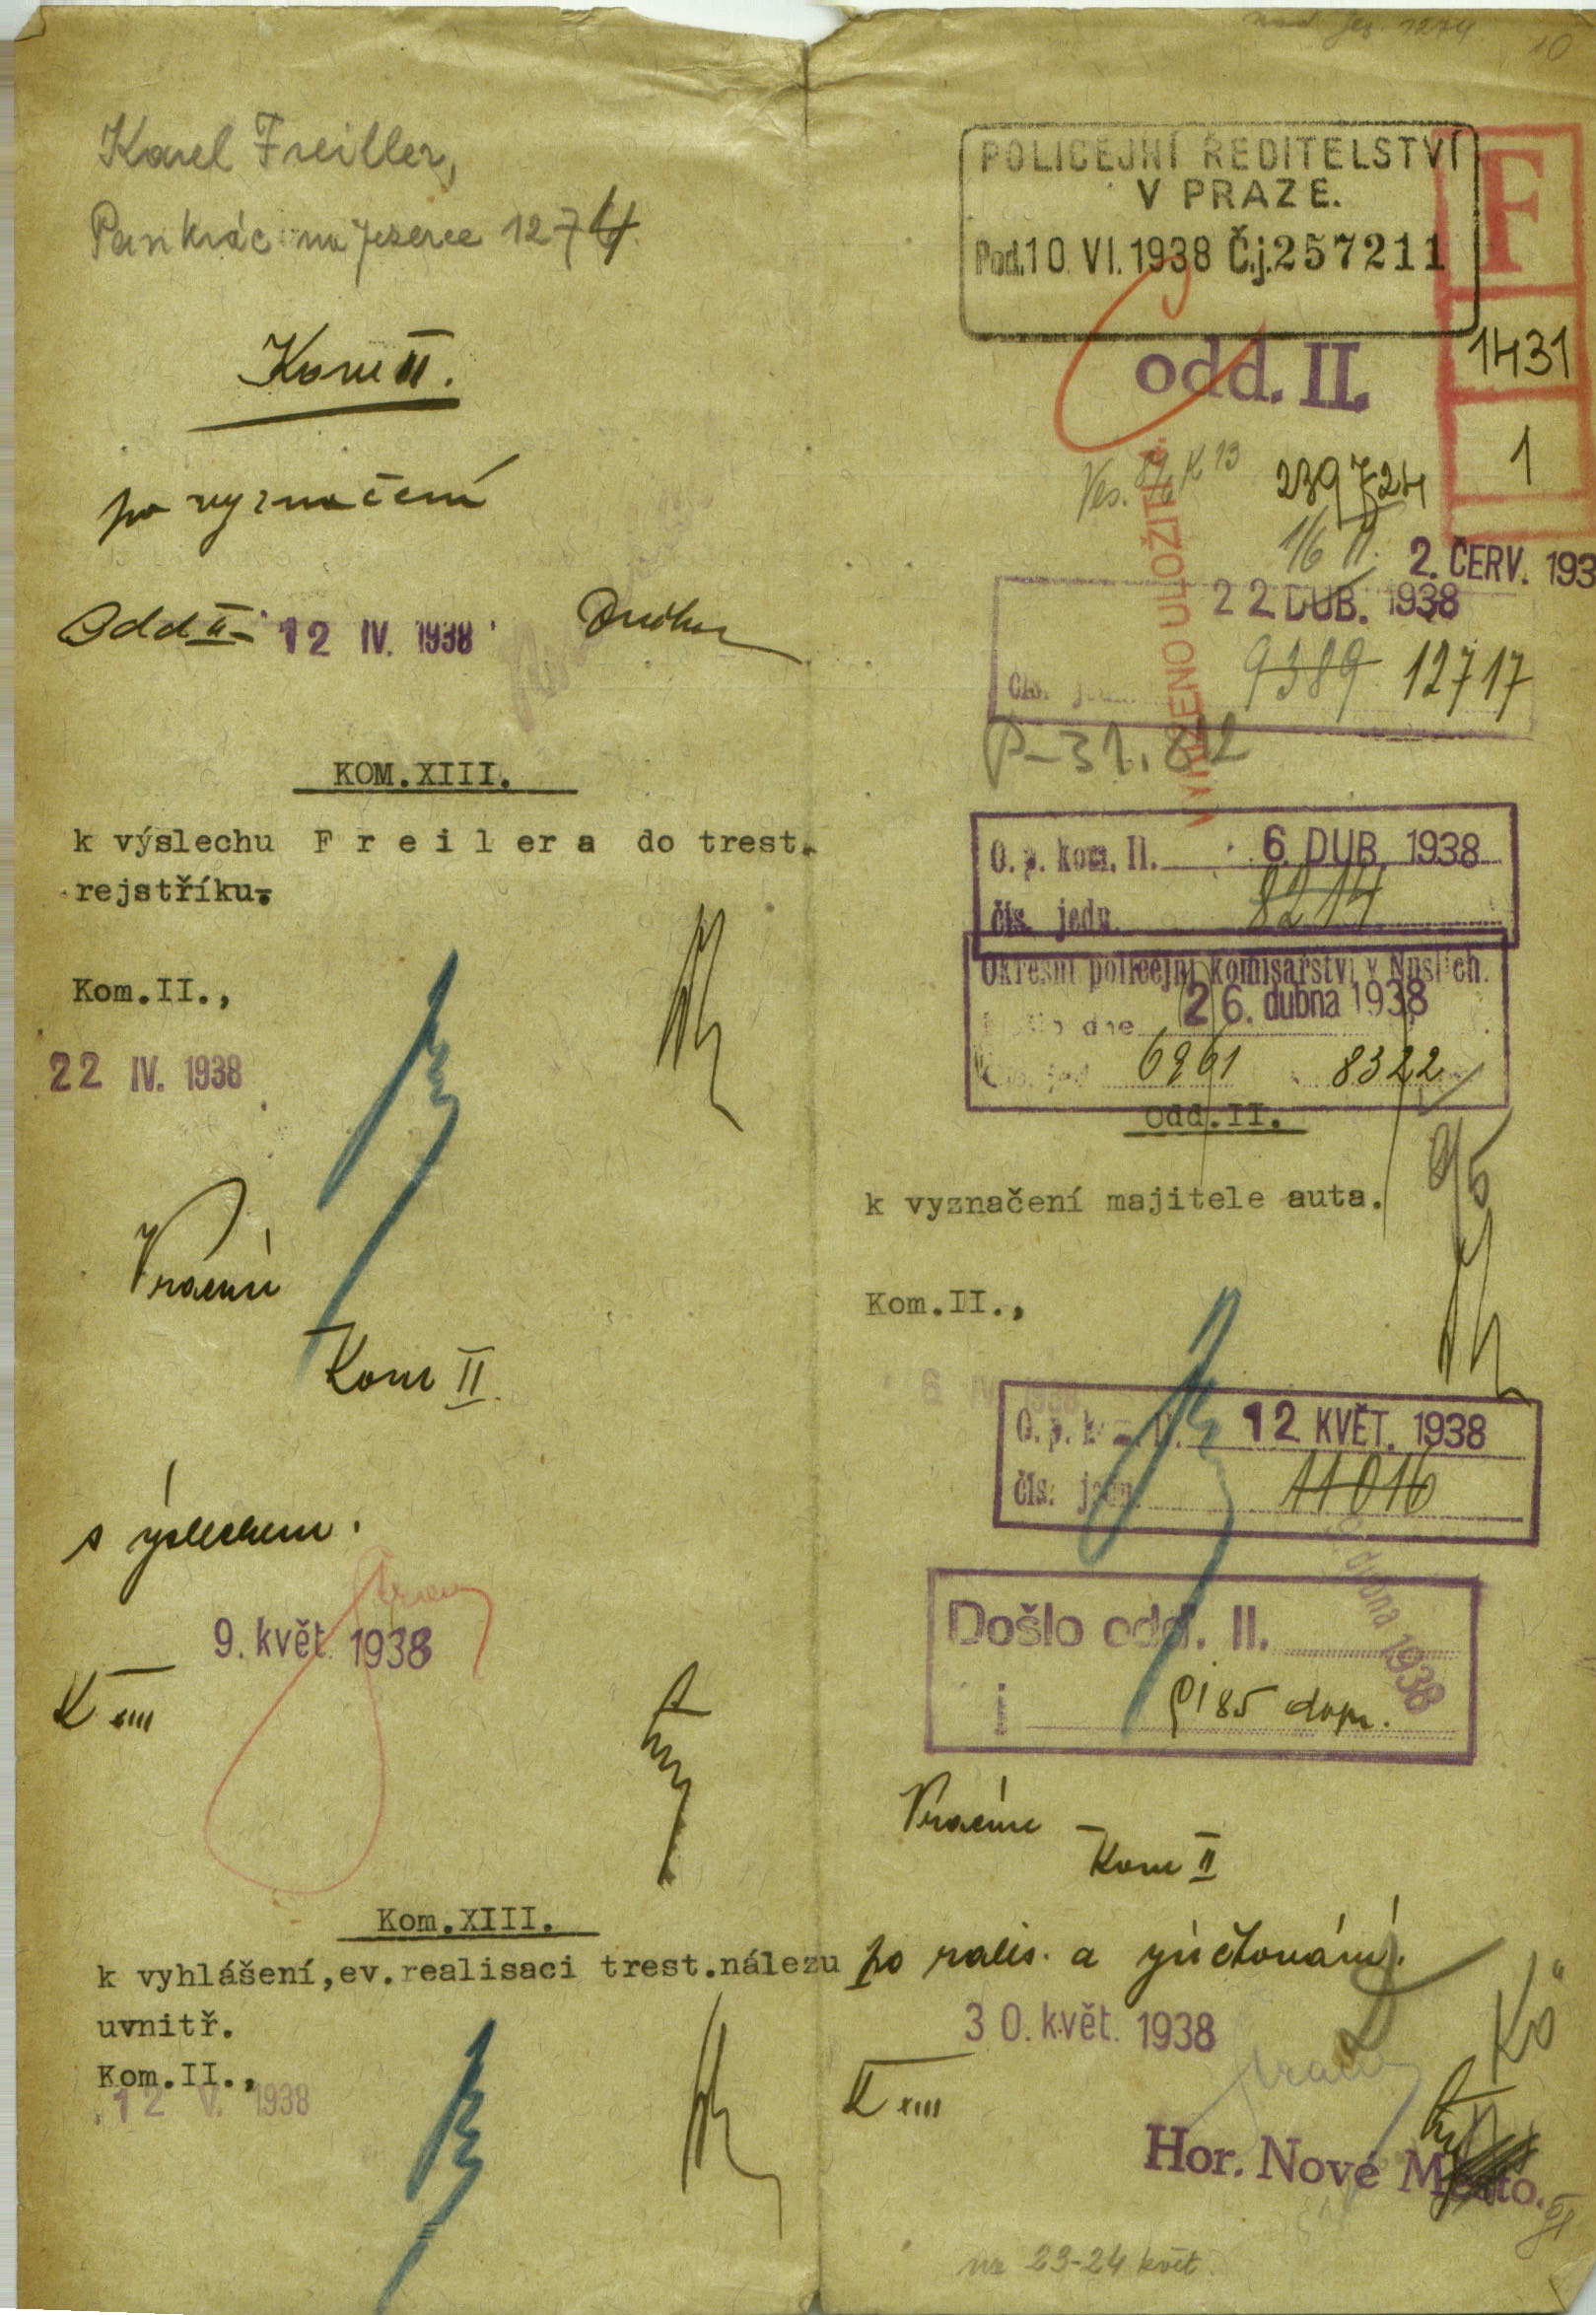 Karel Freiller,
Pankrác na Jezerce 1274
Kom II.
po vyznačení
Odd II 12 IV. 1938
KOM.XIII.
k výslechu F r e i l e r a do trest.
rejstříku.
Kom.II.,
22 IV. 1938
Vrácení
Kom II.
s výslechem.
9. květ. 1938
K XIII
Kom.XIII.
k vyhlášení,ev.realisaci trest.nálezu
uvnitř.
Kom.II.,
12 V. 1938
10
POLICEJNÍ ŘEDITELSTVÍ
V PRAZE.
Pod.10 VI. 1938 Č.j.257211
F
1431
1
odd. II.
239724
2. ČERV. 193
22 DUB. 1938
čís. jedn.
9389 12717
P-31.812
O. p. kom. II. 6. DUB. 1938
čís. jedn. 8214
Okresní policejní komisařství v Nuslích.
Došlo dne 26. dubna 1938
6961 8322
Odd.II.
k vyznačení majitele auta.
9/5
Kom.II.,
6 IV. 1938
O. p. kom. II. 12. KVĚT. 1938
čís. jedn. 11016
Došlo odd. II.
dubna 1938
85 dopr.
Vrácení
Kom II
po realis. a vyúčtování.
30. květ. 1938
K XIII
Hor. Nové Město.
na 23-24 květ.